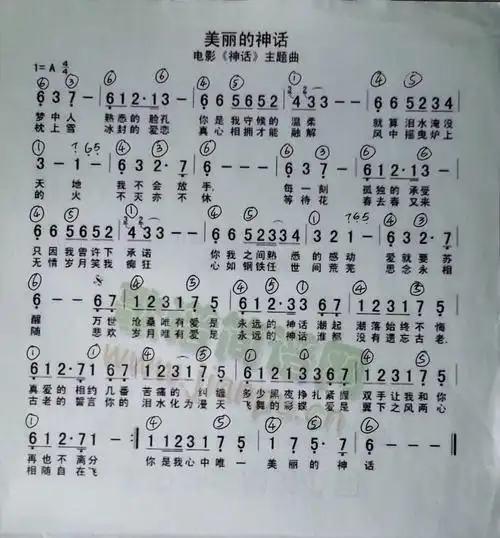 美丽的神话
电影《神话》主题曲
1=A 4/4
⑥ ③ ④ ⑤ ① ④ ⑤
6 3 7 - 6 1 2 · 1 3 6 6 5 6 5 2 4 3 3 - - 6 6 5 2 2 3 4
梦中人 熟悉的脸孔 你是我守候的温柔 就算泪水淹没
枕上雪 冰封的爱恋 真心相拥才能融解 风中摇曳炉上
3 - 1 - 6 3 2 · 7 7 - 6 3 7 - 6 1 2 · 1 3
天地 我不会放手 每一刻 孤独的承受
的火 不灭亦不休 等待花 春去春又来
6 6 5 6 5 2 4 3 3 - - 6 6 5 2 2 3 4 3 1 2 · 6
只因我曾许下承诺 你我之间熟悉的感动 爱就要苏
无情岁月笑我痴狂 心如钢铁任世间荒芜 思念永相
6 - - 6 7 1 1 2 3 1 7 5 6 1 2 · 3 3 6 7 1 1 2 3 1 7 5
醒 万世沧桑唯有爱是永远的神话潮起潮落始终不悔
随 悲欢岁月唯有爱是永远的神话谁都没有遗忘古老
真爱的相约几番苦痛的纠缠多少黑夜挣扎紧握双手让我和你
古老的誓言你的泪水化为漫天飞舞的彩蝶爱是翼下之风两心
6 1 2 · 7 1 - :‖ 1 1 2 3 1 7 5 1 7 5 · 7 6 - - - ‖
再也不离分 你是我心中唯一美丽的神话
相随自在飞